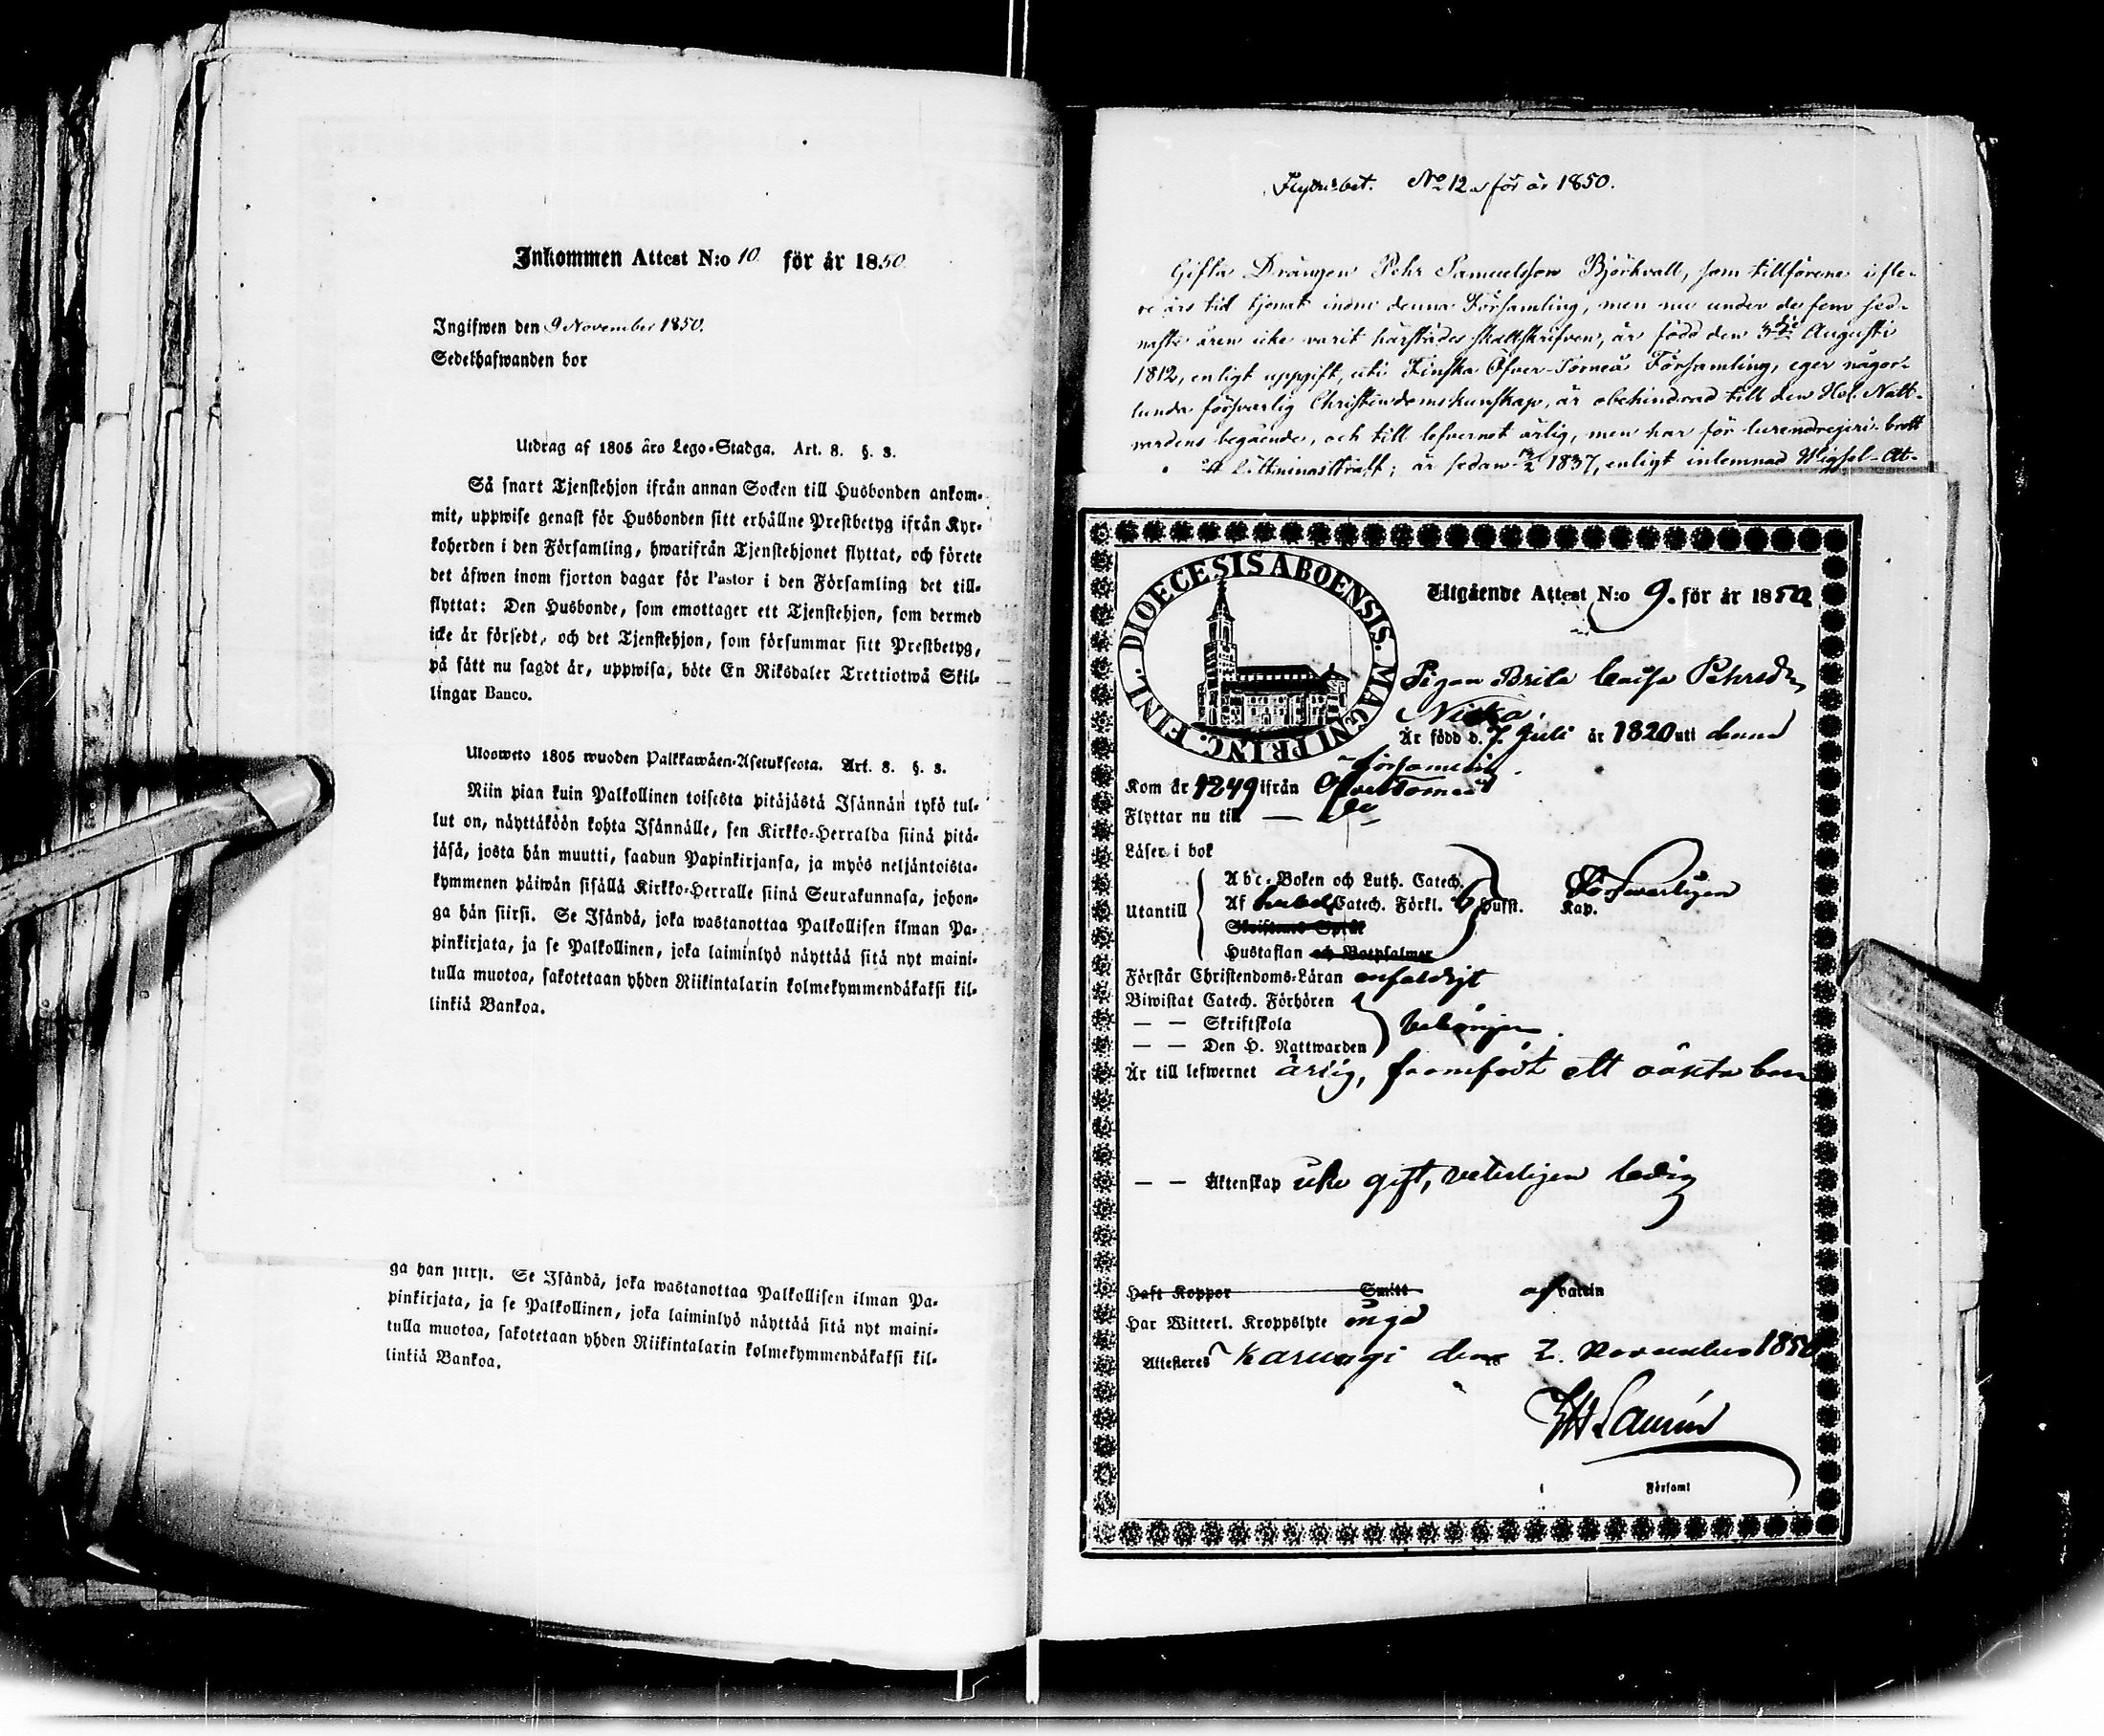 Inkommen Attest N:o 10 för år 1850
Ingifwen den 9 November 1850.
Sedelhafwanden bor
Utdrag af 1805 års Lego-Stadga. Art. 8. §. 3.
Så snart Tjenstehjon ifrån annan Socken till Husbonden ankom-
mit, uppwise genast för Husbonden sitt erhållne Prestbetyg ifrån Kyr-
koherden i den Församling, hwarifrån Tjenstehjonet flyttat, och förete
det äfwen inom fjorton dagar för Pastor i den Församling det till-
flyttat: Den Husbonde, som emottager ett Tjenstehjon, som dermed
icke är försedt, och det Tjenstehjon, som försummar sitt Prestbetyg,
på sätt nu sagdt är, uppwisa, böte En Riksdaler Trettiotwå Skil-
lingar Banco.
Ulosweto 1805 wuoden Palkkawäen-Asetuksesta. Art. 8. §. 3.
Niin pian kuin Palkollinen toisesta pitäjästä Isännän tykö tul-
lut on, näyttäköön kohta Isännälle, sen Kirkko-Herralda siinä pitä-
jäsä, josta hän muutti, saadun Papinkirjansa, ja myös neljäntoista-
kymmenen päiwän sisällä Kirkko-Herralle siinä Seurakunnasa, johon-
ga hän siirsi. Se Isändä, joka wastanottaa Palkollisen ilman Pa-
pinkirjata, ja se Palkollinen, joka laiminlyö näyttää sitä nyt maini-
tulla muotoa, sakotetaan yhden Riikintalarin kolmekymmendäkaksi kil-
linkiä Bankoa.
ga hän siirsi. Se Isändä, joka wastanottaa Palkollisen ilman Pa-
pinkirjata, ja se Palkollinen, joka laiminlyö näyttää sitä nyt maini-
tulla muotoa, sakotetaan yhden Riikintalarin kolmekymmendäkaksi kil-
linkiä Bankoa.
No 12 för år 1850.
Gifta Drängen Pehr Samuelsson Björkvall, som tillförene ifle-
re års tid tjenat inom denna Församling, men nu under de fem sed-
naste åren icke varit härstädes skattskrifven, är född den 3die Augusti
1812, enligt uppgift, uti Finska Öfver-Torneå Församling, eger någor-
lunda försvarlig Christendomskunskap, är obehindrad till den Hel. Natt-
vardens begående, och till lefvernet ärlig, men har för lurendrejeri-brott
; är sedan 1837, enligt inlemnad Vigsel-At-
DIOECESIS ABOENSIS. MAGNI PRINC. FINL.
Utgående Attest N:o 9. för år 1850
Pigan Brita Caisa Pehrsdr
Niska.
Är född d. 7 Juli år 1820 uti denna
församling.
Kom år 1849 ifrån Öfvertorneå
Flyttar nu till — do
Läser i bok
Utantill
Abc-Boken och Luth. Catech.
Af Catech. Förkl. 6 Hufst. Kap.
Försvarligen
Skriftenes Språk
Hustaflan och Botpsalmer
Förstår Christendoms-Läran enfaldigt
Biwistat Catech. Förhören
— — Skriftskola
— — Den H. Nattwarden
behörigen.
Är till lefwernet ärlig, framfödt ett oäkta barn
— — Äktenskap icke gift, veterligen ledig
Haft Koppor Smitt af vaccin
Har Witterl. Kroppslyte inga
Attesteres Karungi den 2. November 1850
Församl